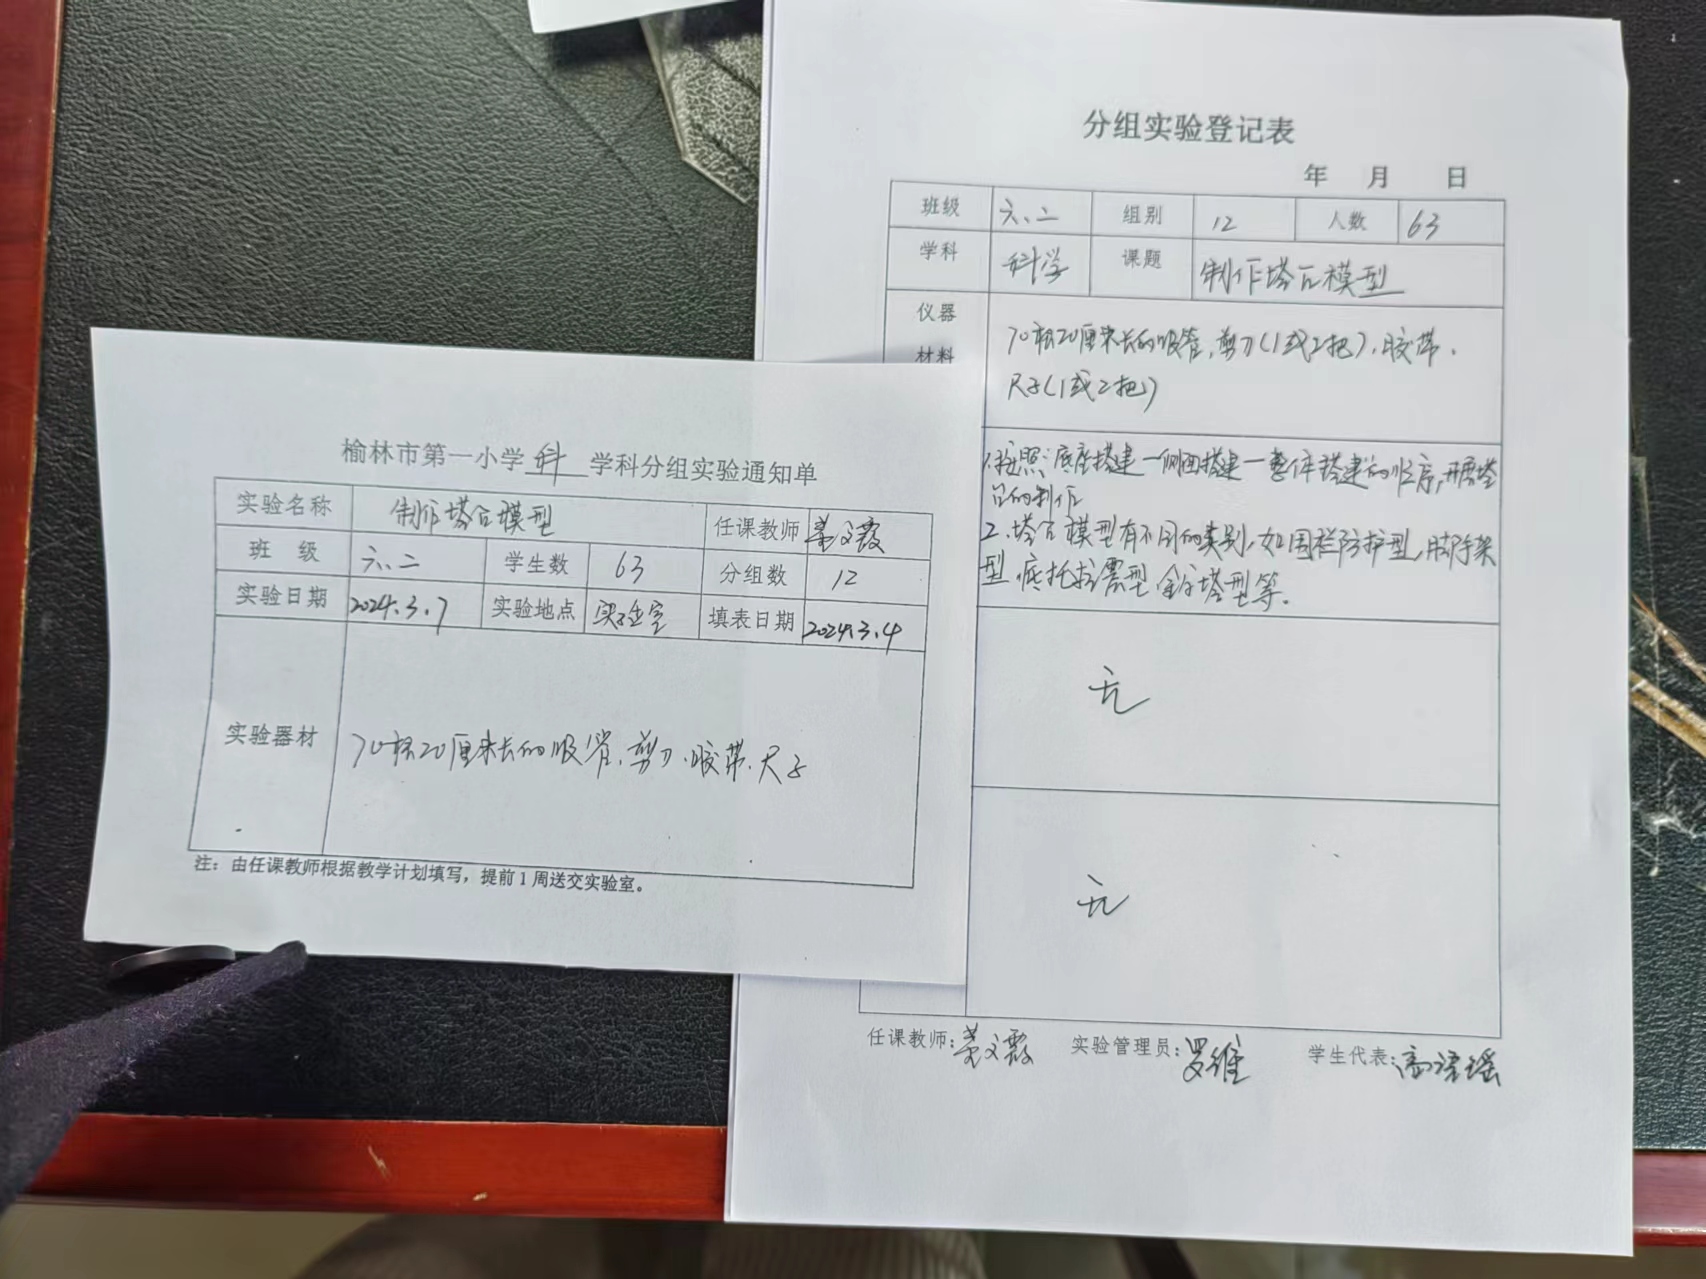 榆林市第一小学 科 学科分组实验通知单
实验名称 制作塔台模型 任课教师 姜文霞
班 级 六、二 学生数 63 分组数 12
实验日期 2024.3.7 实验地点 实验室 填表日期 2024.3.4
实验器材 70根20厘米长的吸管、剪刀、胶带、尺子
注：由任课教师根据教学计划填写，提前1周送交实验室。
分组实验登记表
年 月 日
班级 六、二 组别 12 人数 63
学科 科学 课题 制作塔台模型
仪器
材料
70根20厘米长的吸管，剪刀(1或2把)，胶带，
尺子(1或2把)
1.按照：底座搭建—侧面搭建—整体搭建的顺序，开展塔
台的制作
2.塔台模型有不同的类别，如围栏防护型，脚手架
型，底托抗震型，金字塔型等.
无
无
任课教师：姜文霞 实验管理员：罗维 学生代表：高语瑶